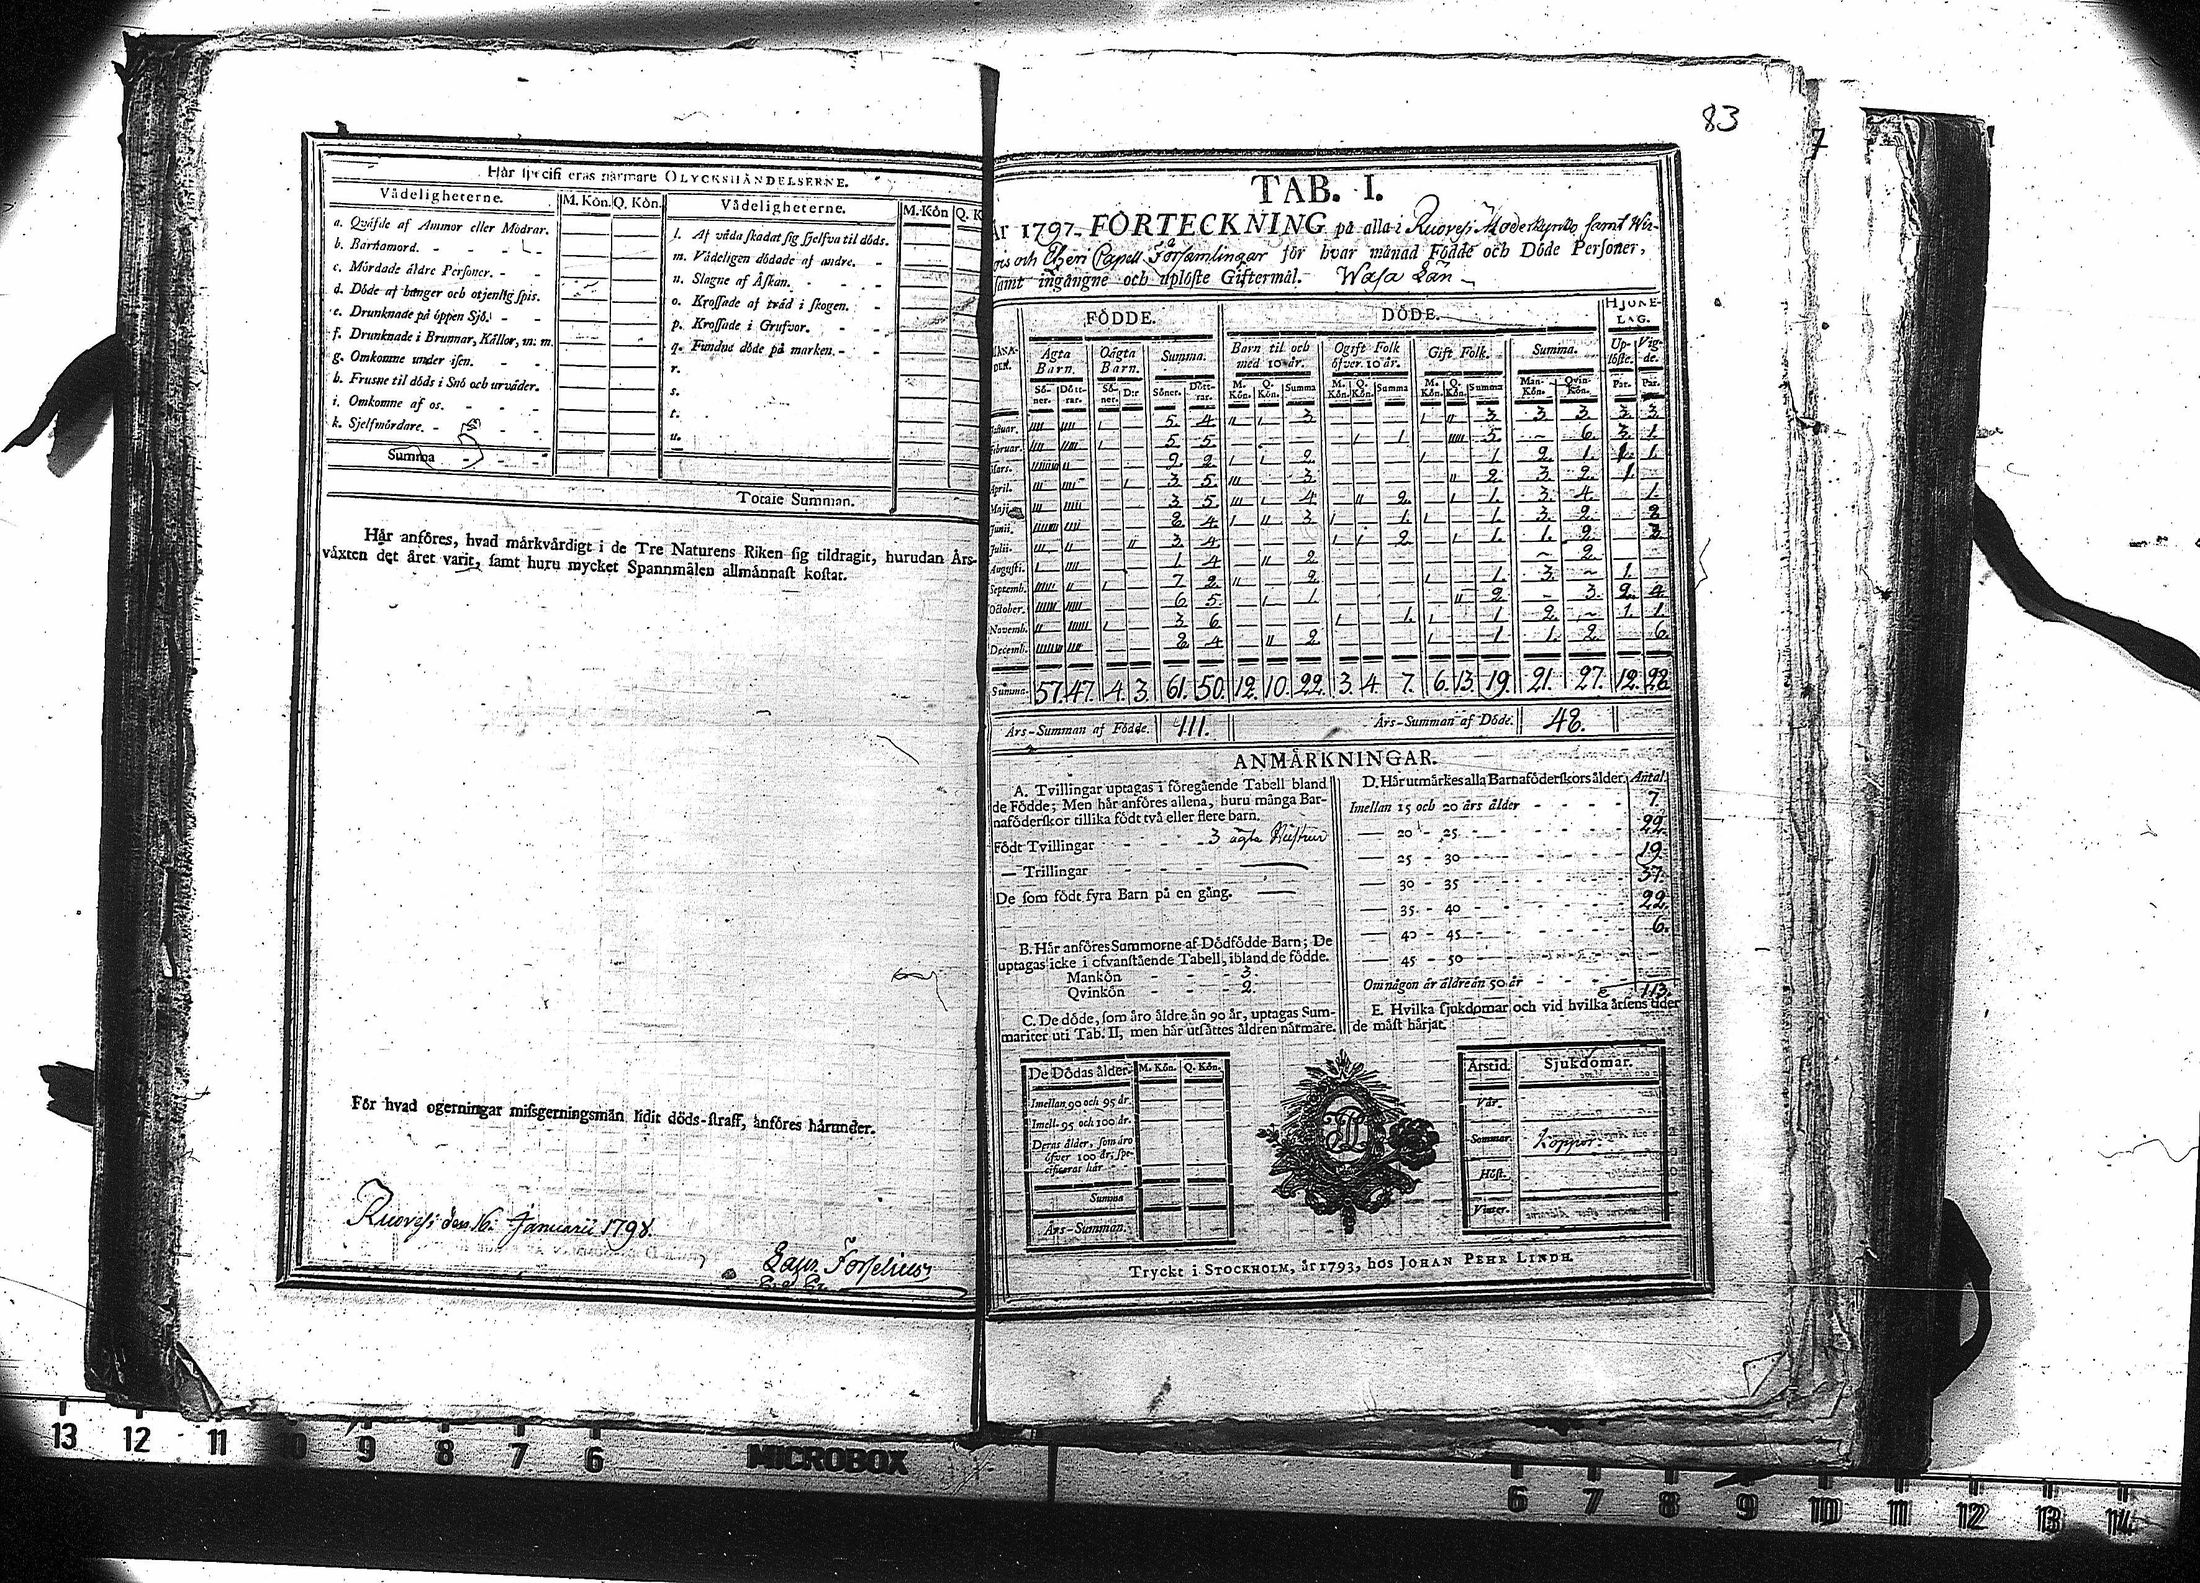 83
7
Här specificeras närmare OLYCKSHÄNDELSERNE.
Vådeligheterne. M. Kön. Q. Kön. Vådeligheterne. M. Kön Q. K
a. Qväfde af Ammor eller Mödrar.
b. Barnamord. - - - -
c. Mördade äldre Personer. - -
d. Döde af hunger och otjenlig spis.
e. Drunknade på öppen Sjö. - -
f. Drunknade i Brunnar, Källor, m: m.
g. Omkomne under isen. - -
h. Frusne til döds i Snö och urväder.
i. Omkomne af os. - - -
k. Sjelfmördare. - - -
Summa - - -
l. Af våda skadat sig sjelfva til döds.
m. Vådeligen dödade af andre. -
n. Slagne af Åskan. - - -
o. Krossade af träd i skogen. -
p. Krossade i Grufvor. - -
q. Fundne döde på marken. - -
r.
s.
t.
u.
Totale Summan.
Här anföres, hvad märkvärdigt i de Tre Naturens Riken sig tildragit, hurudan Års-
växten det året varit, samt huru mycket Spannmålen allmännast kostat.
För hvad ogerningar missgerningsmän lidit döds-straff, anföres härunder.
Ruovesi den 16. Januarii 1798.
Laur. Forselius
TAB. I.
År 1797. FÖRTECKNING på alla i Ruovesi Moderkyrko samt Wir-
dois och Etheri Capell Församlingar för hvar månad Födde och Döde Personer,
samt ingångne och uplöste Giftermål. Wasa Län
FÖDDE. DÖDE. HJONE-LAG.
MÅNADER. Ägta Barn. Oägta Barn. Summa. Barn til och med 10 år. Ogift Folk öfver 10 år. Gift Folk. Summa. Uplöste. Vigde.
Söner. Döttrar. Söner. D:r Söner. Döttrar. M. Kön. Q. Kön. Summa M. Kön. Q. Kön. Summa M. Kön. Q. Kön. Summa Mankön. Qvinkön. Par. Par.
Januar. 5. 4. 3. 3. 3. 3. 3. 3.
Februar. 5. 5. 1. 5. 6. 3. 1.
Mars. 9. 2. 2. 1. 2. 1. 1. 1.
April. 3. 5. 3. 2. 3. 2. 1.
Maji. 3. 5. 4. 2. 1. 3. 4. 1.
Junii. 8. 4. 3. 1. 1. 3. 2. 8.
Julii. 3. 4. 2. 1. 1. 2. 3.
Augusti. 1. 4. 2. 2.
Septemb. 7. 2. 2. 1. 3. 1.
October. 6. 5. 1. 2. 3. 2. 4.
Novemb. 3. 6. 1. 1. 2. 1. 1.
Decemb. 8. 4. 2. 1. 1. 2. 6.
Summa. 57. 47. 4. 3. 61. 50. 12. 10. 22. 3. 4. 7. 6. 13. 19. 21. 27. 12. 28.
Års-Summan af Födde. 111. Års-Summan af Döde. 48.
ANMÄRKNINGAR.
A. Tvillingar uptagas i föregående Tabell bland
de Födde; Men här anföres allena, huru många Bar-
naföderskor tillika födt två eller flere barn.
Födt Tvillingar - - - 3 ägta Hustrur
— Trillingar - - -
De som födt fyra Barn på en gång.
B. Här anföres Summorne af Dödfödde Barn; De
uptagas icke i ofvanstående Tabell, ibland de födde.
Mankön - - - 3.
Qvinkön - - - 2.
C. De döde, som äro äldre än 90 år, uptagas Sum-
mariter uti Tab. II, men här utsättes åldren närmare.
De Dödas ålder. M. Kön. Q. Kön.
Imellan 90 och 95 år.
Imell. 95 och 100 år.
Deras ålder, som äro
öfver 100 år, spe-
cificeras här - -
Summa
Års-Summan.
D. Här utmärkes alla Barnaföderskors ålder. Antal.
Imellan 15 och 20 års ålder - - - - 7.
— 20 - 25 - - - - 22.
— 25 - 30 - - - - 19.
— 30 - 35 - - - - 37.
— 35 - 40 - - - - 22.
— 40 - 45 - - - - 6.
— 45 - 50 - - - -
Om någon är äldre än 50 år - - - 113.
E. Hvilka sjukdomar och vid hvilka årsens tider
de mäst härjat.
Årstid. Sjukdomar.
Vår.
Sommar. Koppor.
Höst.
Vinter.
Tryckt i STOCKHOLM, år 1793, hos JOHAN PEHR LINDH.
13 12 11 10 9 8 7 6 MICROBOX 6 7 8 9 10 11 12 13 14